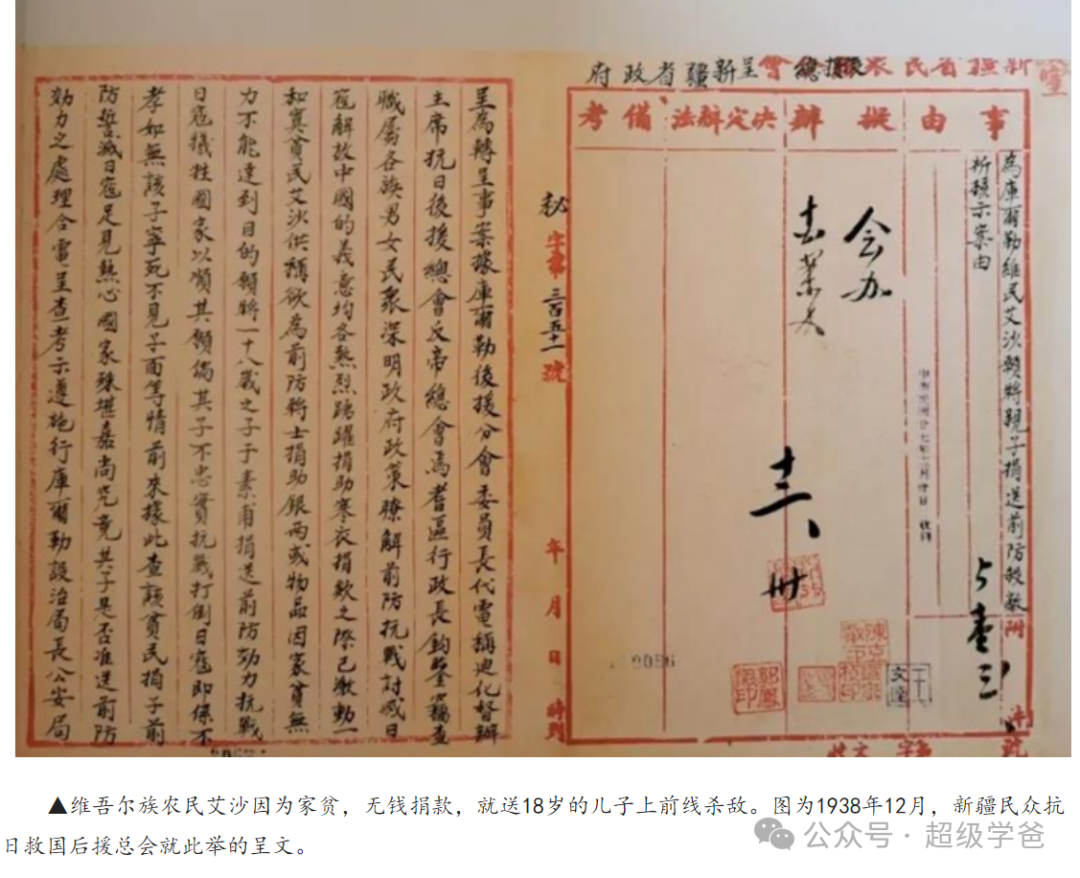 呈新疆省政府
事由
擬辦
決定辦法
備考
為庫爾勒維民艾沙願將親子捐送前防殺敵
祈核示案由
会办
0086
秘字第三百五十一號
年月日時到
呈為轉呈事案據庫爾勒後援分會委員長代電稱迪化督辦
主席抗日後援總會反帝總會焉耆區行政長鈞鑒竊查
職屬各族男女民衆深明政府政策瞭解前防抗戰討滅日
寇解放中國的義意均各熱烈踴躍捐助寒衣捐款之際已激動一
和貧民艾沙供稱欲為前防將士捐助銀両或物品因家貧無
力不能達到目的願將一十八歲之子于素甫捐送前防効力抗戰
日寇犧牲國家以其願倘其子不忠實抗戰打倒日寇即係不
孝如無該子寧死不見子面等情前來據此查該貧民捐子前
防誓滅日寇足見熱心國家殊堪嘉尚究竟其子是否准送前防
効力之處理合電呈查考示遵施行庫爾勒設治局長公安局
▲维吾尔族农民艾沙因为家贫，无钱捐款，就送18岁的儿子上前线杀敌。图为1938年12月，新疆民众抗
日救国后援总会就此举的呈文。
公众号·超级学爸